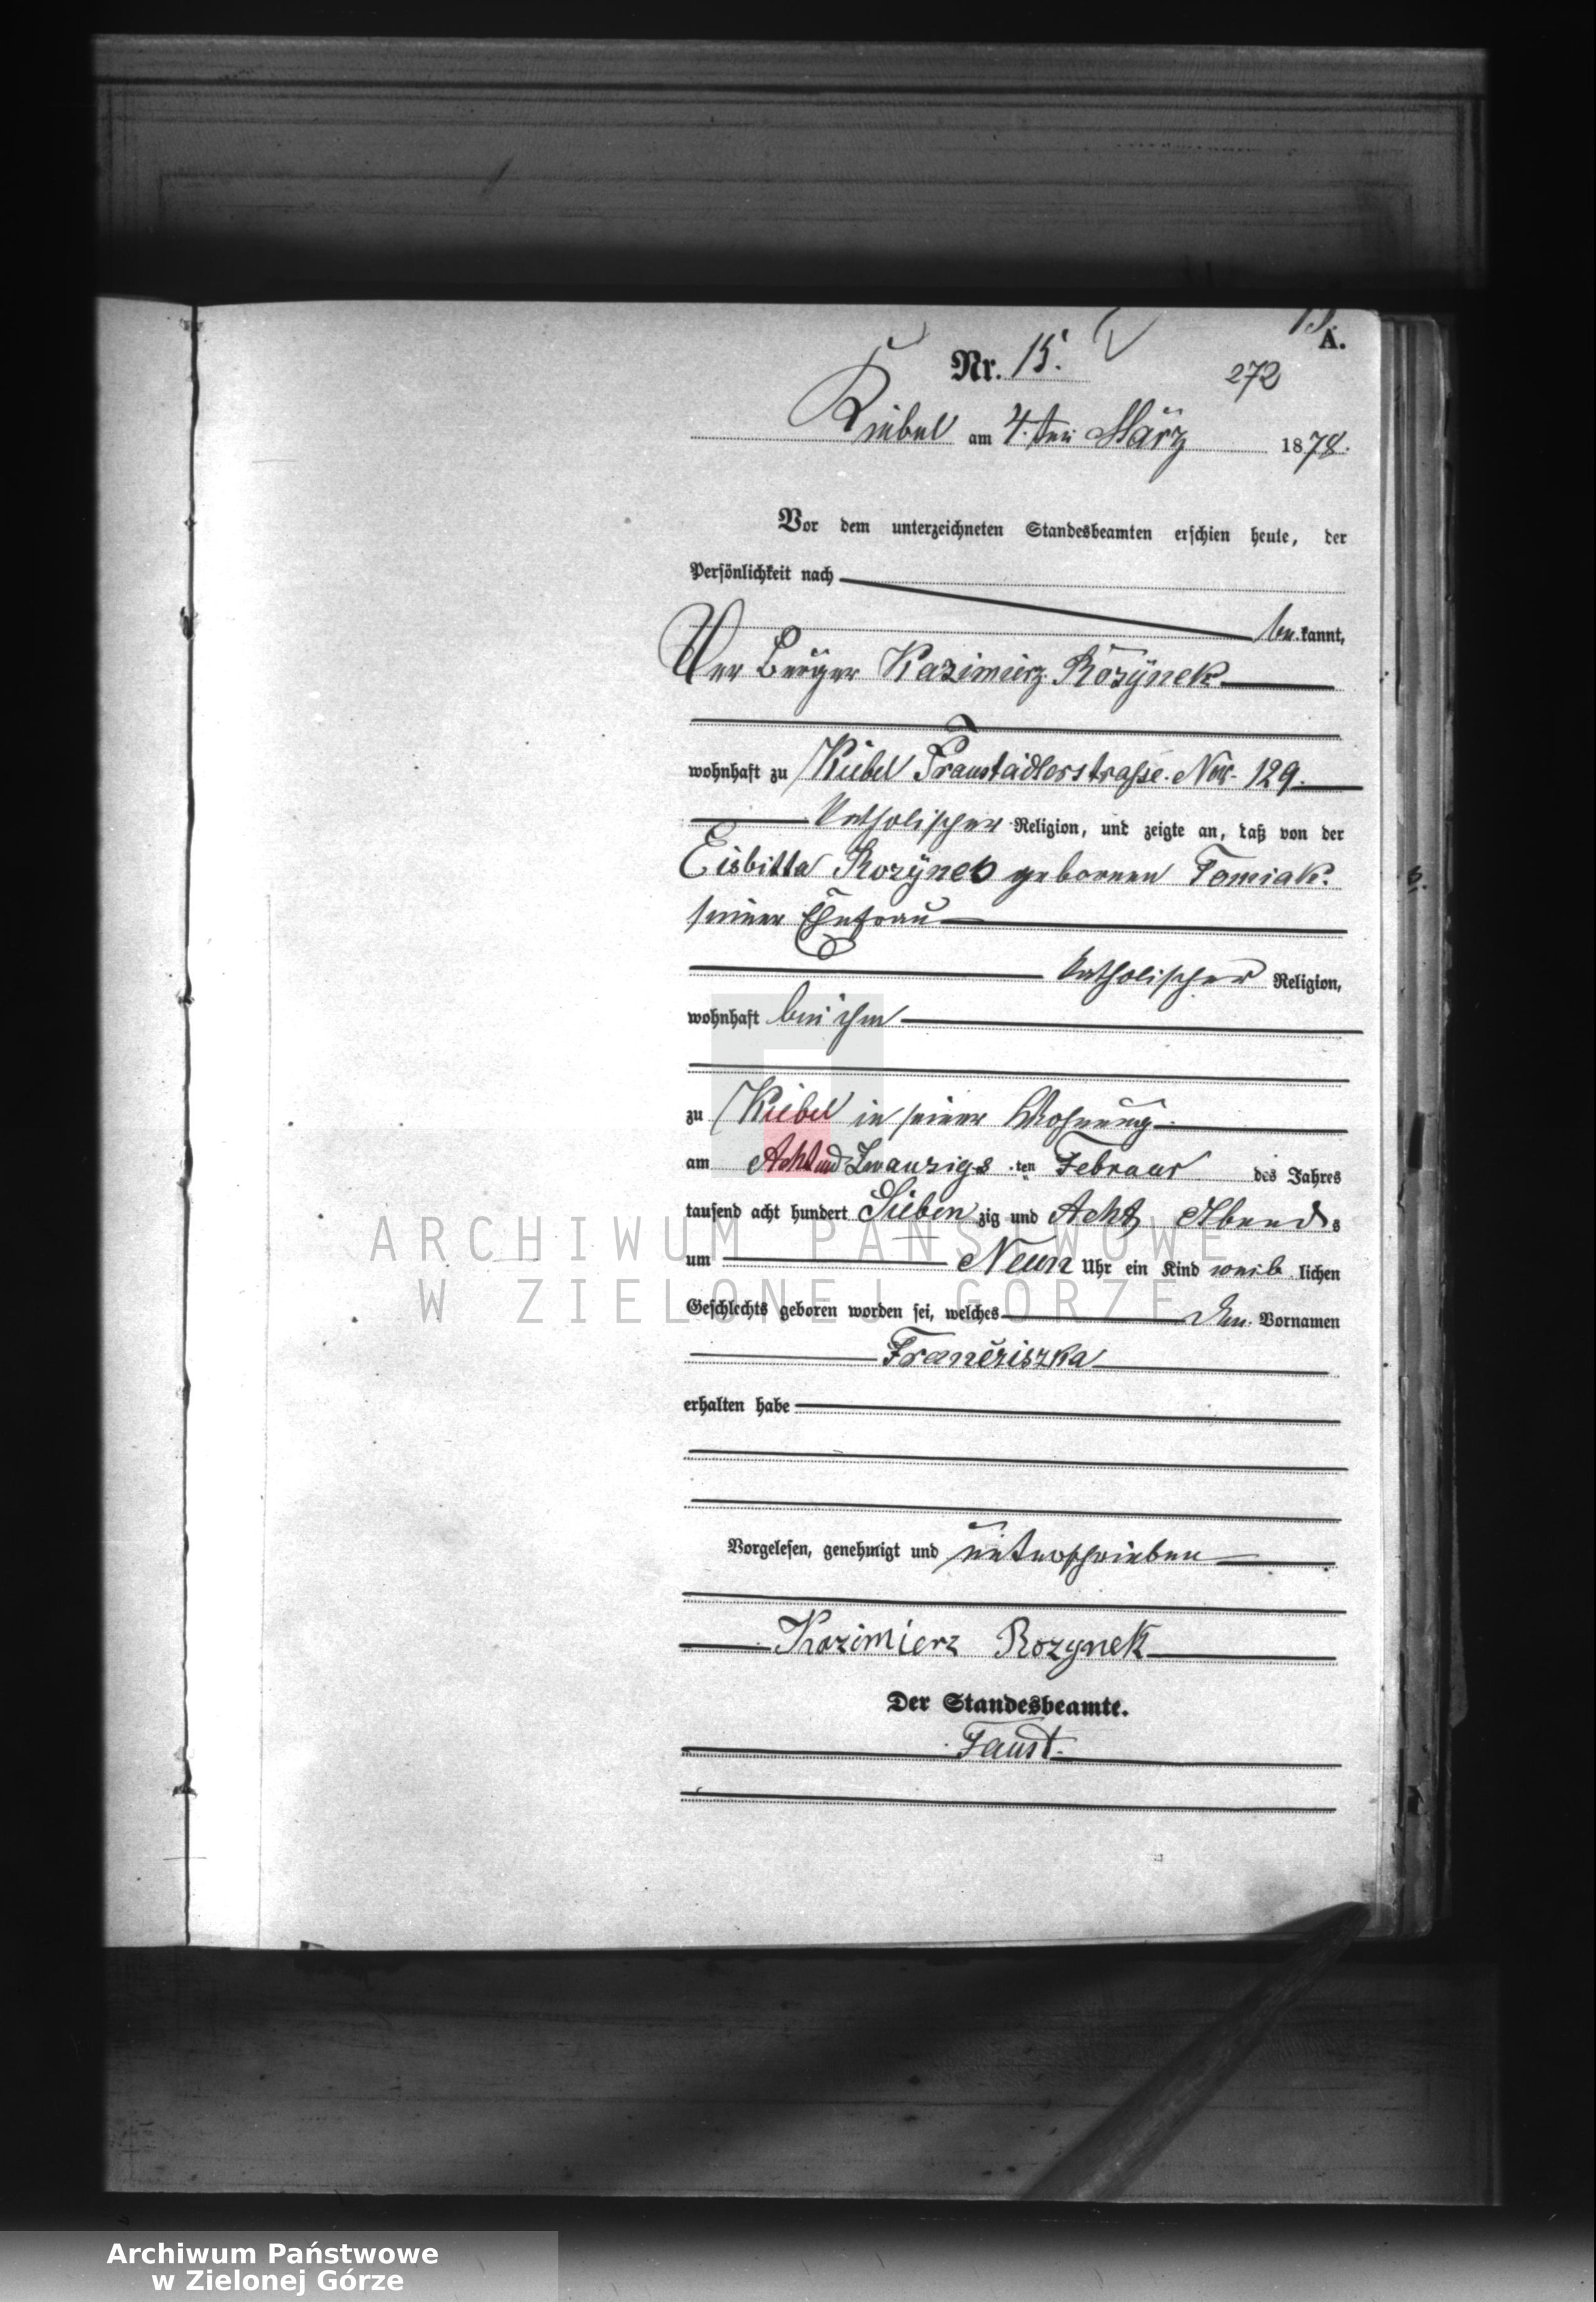 A.
Nr. 15.
272
Kiebel am 4. ten März 1878.
Vor dem unterzeichneten Standesbeamten erschien heute, der
Persönlichkeit nach
be kannt,
Der Bürger Kazimierz Rozynek
wohnhaft zu Kiebel Fraustädterstraße Nro. 129.
katholischer Religion, und zeigte an, daß von der
Eisbitta Rozynek geborenen Tomiak.
seiner Ehefrau
katholischer Religion,
wohnhaft bei ihm
zu Kiebel in seiner Wohnung
am Acht und Zwanzigs ten Februar des Jahres
tausend acht hundert Sieben zig und Acht Abends
um Neun Uhr ein Kind weib lichen
Geschlechts geboren worden sei, welches den Vornamen
Franciszka
erhalten habe
Vorgelesen, genehmigt und unterschrieben
Kazimierz Rozynek
Der Standesbeamte.
Faust.
ARCHIWUM PAŃSTWOWE
W ZIELONEJ GÓRZE
Archiwum Państwowe
w Zielonej Górze